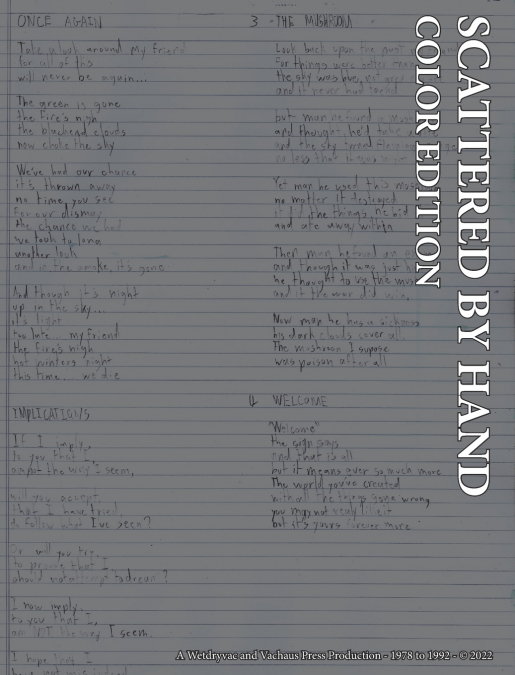 SCATTERED BY HAND
COLOR EDITION
ONCE AGAIN
Take a look around my friend
for all of this
will never be again...
The green is gone
the fire's nigh
the blackend clouds
now choke the sky
We've had our chance
it's thrown away
no time, you see
For our dismay
the chance we had
we took to long
another look
and in the smoke, it's gone
And though it's night
up in the sky...
it's light
too late... my friend
the fire's nigh
not winters night
this time.... we die
IMPLICATIONS
If I imply,
to you that I,
the way I seem,
will you accept,
that I have tried,
to follow what I've seen?
Or will you try,
to prove that I
should not attempt to dream?
I now imply,
to you that I,
am NOT the way I seem.
I hope that I
3 - THE MUSHROOM
Look back upon the past
for things were better
the sky was blue, not
and it never had
but man he found a
and thought he'd take
and the sky turned
no less that
Yet man he used this
no matter it destroyed
it did the things he bid
and ate away within
Then man he found an
and though it was just
he thought to use the
and if the war did
Now man he has a sickness
his dark clouds cover all
The mushroom I supose
was poison after all
4 WELCOME
"Welcome"
the sign says
and that is all
but it means ever so much more
The world you've created
with all the things gone wrong
you may not really like it
but it's yours forever more
A Wetdryvac and Vachaus Press Production - 1978 to 1992 - © 2022